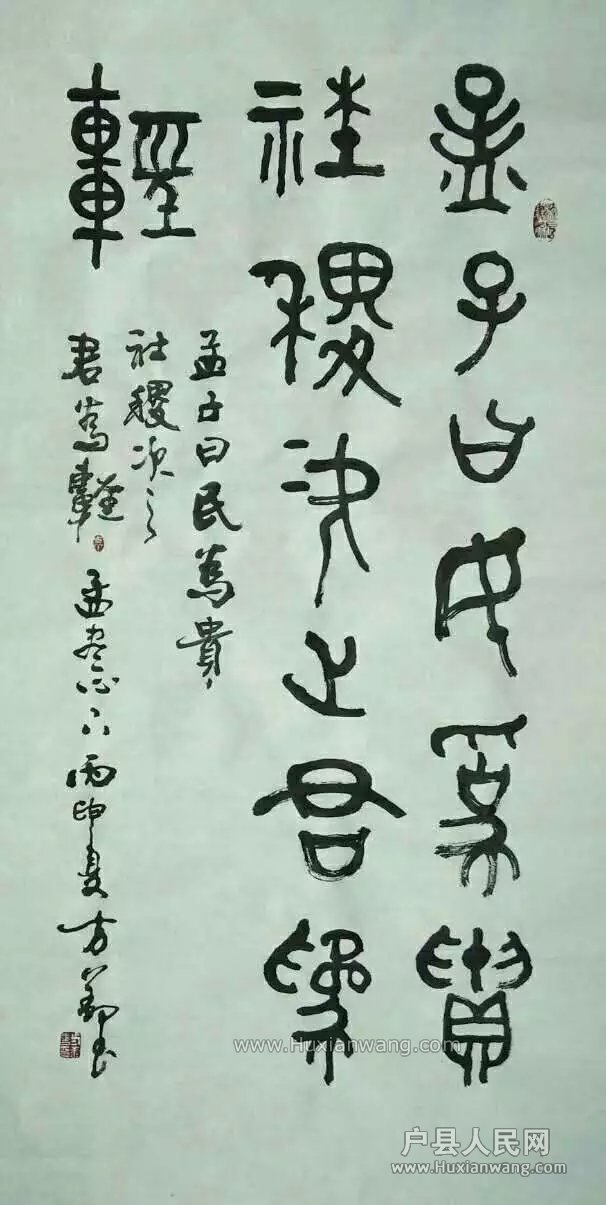 孟子曰民為貴
社稷次之君為
輕
孟子曰民為貴
社稷次之
君為輕
孟尽心下丙申夏方
www.Huxianwang.com
户县人民网
www.Huxianwang.com